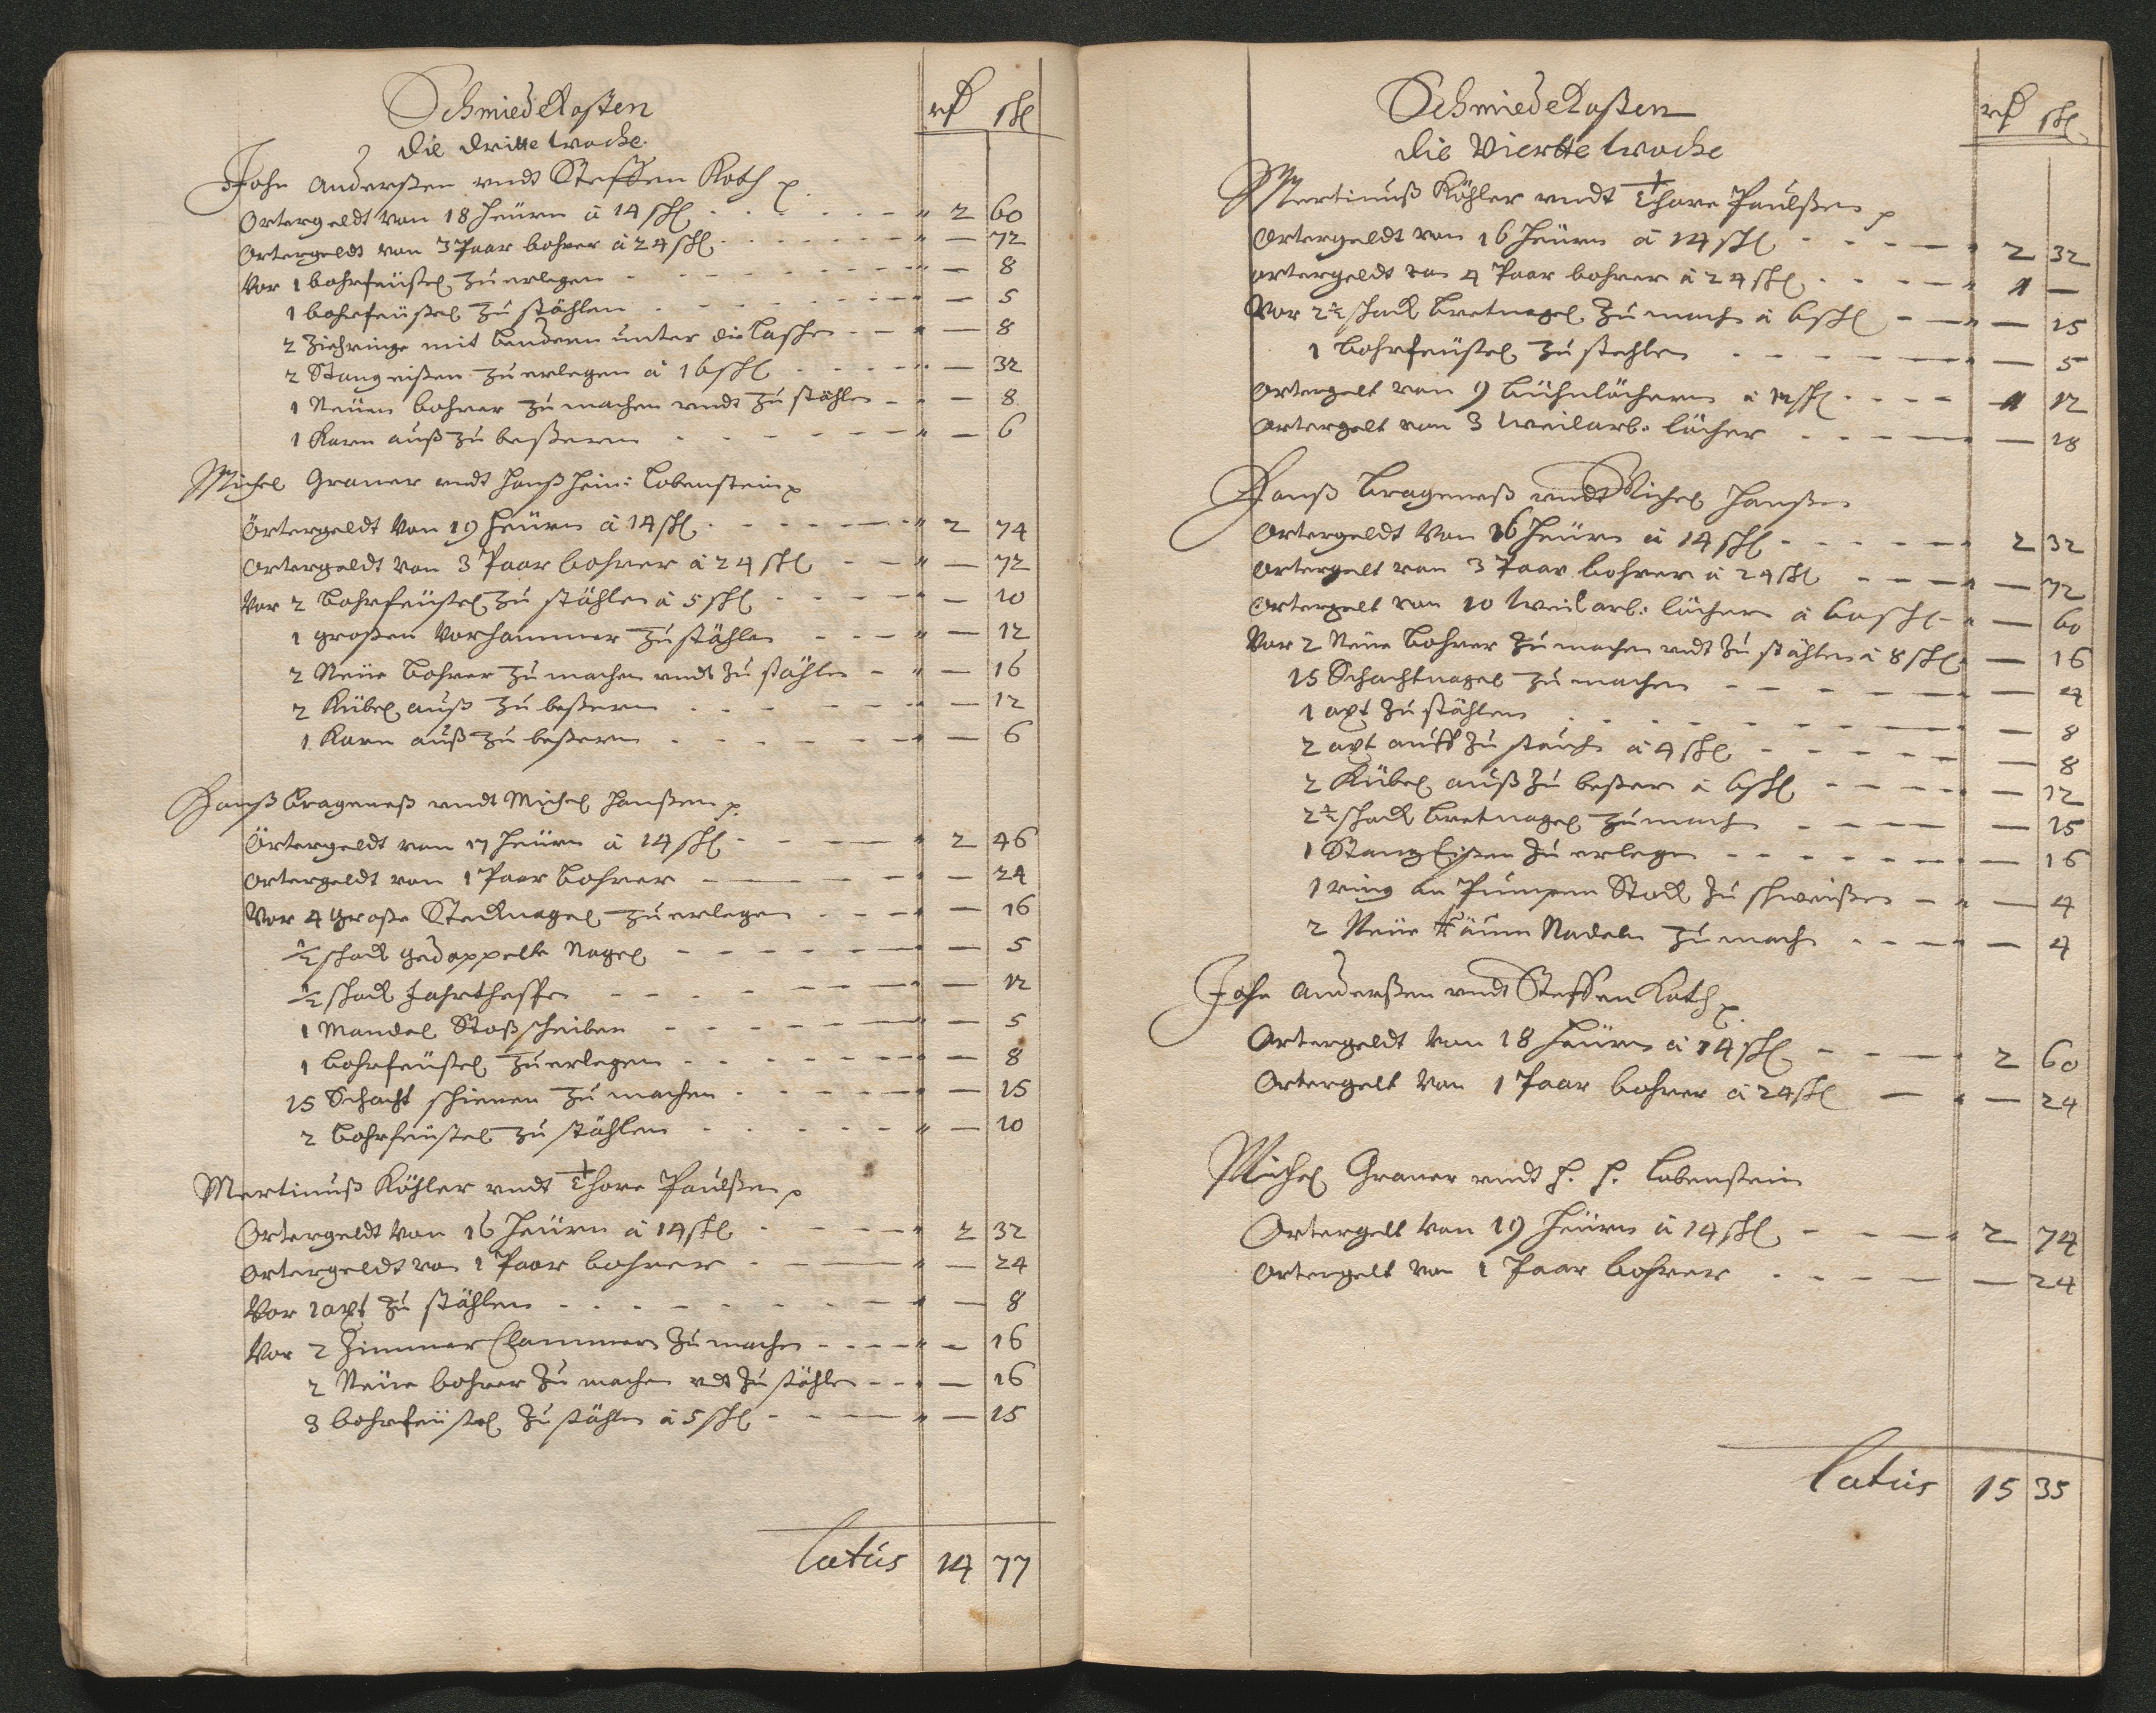 Schmiedekosten
die dritte woche.
rß ßl
John Anderßen undt Steffen Koch p.
Örtergeldt von 18 heüern à 14 ßl - - - " 2 60
Örtergeldt von 3 Paar bohrer à 24 ßl - - - " — 72
Vor 1 bohrfeüstel zu erlegen - - - " — 8
1 bohrfeüstel zu stählen - - - " — 5
2 Ziehringe mit bendern unter die Laschen - - " — 8
2 Stangeißen zu erlegen à 16 ßl - - - " — 32
1 Neüen bohrer zu machen undt zu stählen - " — 8
1 Karn auß zu beßeren - - - " — 6
Michel Graner undt Hanß Hein: Lobenstein p
Örtergeldt Von 19 heüern à 14 ßl - - - " 2 74
Örtergeldt von 3 Paar bohrer à 24 ßl - - " — 72
Vor 2 Bohrfeüstel zu stählen à 5 ßl - - - " — 10
1 großen Vorhammer zu stählen - - - " — 12
2 Neüe bohrer zu machen undt zu stählen - " — 16
2 Kübel auß zu beßeren - - - " — 12
1 Karn auß zu beßeren - - - " — 6
Hanß Brageneß undt Michel Hanßen p.
Örtergeldt von 17 heüern à 14 ßl - - - " 2 46
Örtergeldt von 1 Paar bohrer - - - " — 24
Vor 4 große Stecknagel zu erlegen - - - " — 16
½ schock gedoppelte Nagel - - - " — 5
½ schock Fahrthespen - - - " — 12
1 Mandel Stoßscheiben - - - " — 5
1 bohrfeüstel zu erlegen - - - " — 8
15 Schacht schienen zu machen - - - " — 15
2 bohrfeüstel zu stählen - - - " — 10
Mertinuß Köhler undt Thore Paulßen p
Örtergeldt Von 16 heüern à 14 ßl - - - " 2 32
Örtergeldt von 1 Paar bohrer - - - " — 24
Vor 1 axt zu stählen - - - " — 8
Vor 2 Zimmer Clammern zu machen - - - " — 16
2 Neüe bohrer zu machen undt zu stählen - - " — 16
3 bohrfeüstel zu stählen à 5 ßl - - - " — 15
Latus 14 77
Schmiedekosten
die Vierte woche
rß ßl
Mertinuß Köhler undt Thore Paulßen p
Örtergeldt von 16 heüern à 14 ßl - - - " 2 32
Örtergeldt von 4 Paar bohrer à 24 ßl - - - " 1 —
Vor 2½ schock bretnagel zu machen à 6 ßl - - " — 15
1 bohrfeüstel zu stehlen - - - — 5
Örtergelt von 9 bühnlöchern à 12 ßl - - - 1 12
Örtergelt von 3 weilarb: löcher - - - — 18
Hanß Brageneß undt Michel Hanßen
Örtergeldt Von 16 heüern à 14 ßl - - - 2 32
Örtergelt von 3 Paar bohrer à 24 ßl - - - " — 72
Örtergelt von 10 weilarb: löcher à 6 ßl - " — 60
Vor 2 Neüe Bohrer zu machen undt zu stählen à 8 ßl — 16
15 Schachtnagel zu machen - - - — 4
1 axt zu stählen - - - — 8
2 axt auff zu steuchen à 4 ßl - - - — 8
2 Kübel auß zu beßeren à 6 ßl - - - — 12
2½ schock bretnagel zu machen - - - — 15
1 Stang Eißen zu erlegen - - - — 16
1 ring an Pumpen Stock zu schweißen - " — 4
2 Neüe Räum Nadeln zu machen - - - — 4
John Anderßen undt Steffen Koch p.
Örtergeldt von 18 heüern à 14 ßl - - - 2 60
Örtergelt Von 1 Paar bohrer à 24 ßl — " — 24
Michel Graner undt H. H. Lobenstein
Örtergelt von 19 heüern à 14 ßl - - - " 2 74
Örtergelt von 1 Paar bohrer - - - — 24
Latus 15 35